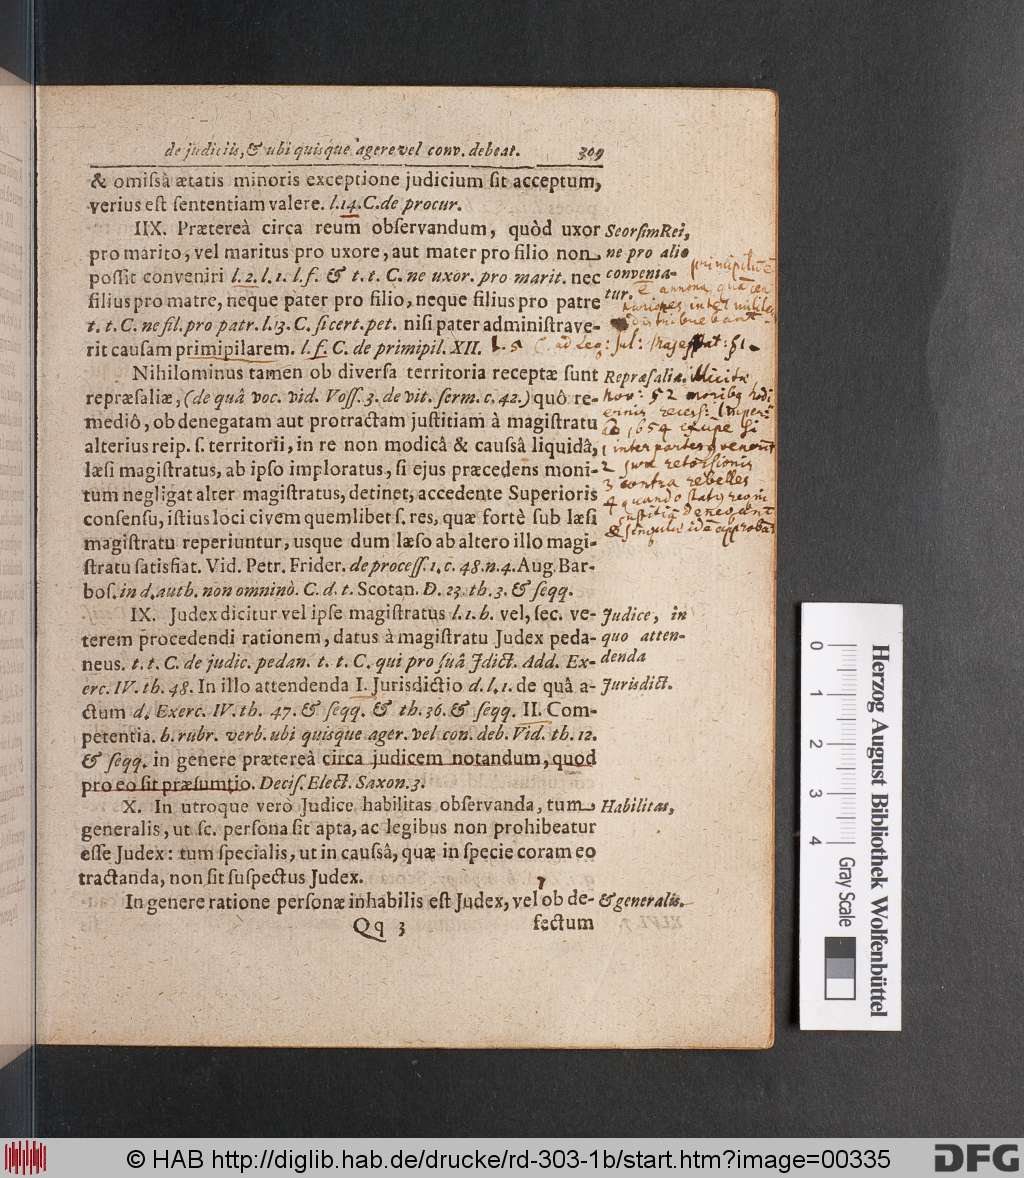 de judiciis, & ubi quisque agere vel conv. debeat. 309
& omiſsâ ætatis minoris exceptione judicium ſit acceptum,
verius eſt ſententiam valere. l.14.C.de procur.
IIX. Prætereà circa reum obſervandum, quòd uxor
Seorſim Rei,
pro marito, vel maritus pro uxore, aut mater pro filio non
ne pro alio
poſſit conveniri l.2.l.1.l.f. & t.t.C.ne uxor. pro marit. nec
conventa-
filius pro matre, neque pater pro filio, neque filius pro patre
tur.
principilū ē
ē annona, quā cen
turiones inter milites
distribuebant
t.t.C. ne fil. pro patr. l.13.C. ſi cert. pet. niſi pater adminiſtrave-
rit cauſam primipilarem. l.f. C. de primipil. XII. l. 5 C. ad Leg: Jul: Majeſtat: §1.
Nihilominus tamen ob diverſa territoria receptæ ſunt
Repræſalia. Illicitæ
repræſaliæ, (de quâ voc. vid. Voſſ. 3. de vit. ſerm. c. 42.) quô re-
Nov: 52 moribq hodi
mediô, ob denegatam aut protractam juſtitiam à magiſtratu
ernis receſſ: Imper:
alterius reip. ſ. territorii, in re non modicâ & cauſsâ liquidâ,
1654 excipe ſi
1 inter partes convenerit
læſi magiſtratus, ab ipſo imploratus, ſi ejus præcedens moni-
2 jure retorſionis
tum negligat alter magiſtratus, detinet, accedente Superioris
3 contra rebelles
4 quando
conſenſu, iſtius loci civem quemlibet ſ. res, quæ fortè ſub læſi
juſtitiā denegant
magiſtratu reperiuntur, usque dum læſo ab altero illo magi-
& ſinguli idē approbāt
ſtratu ſatisfiat. Vid. Petr. Frider. de proceſſ. 1. c. 48. n. 4. Aug. Bar-
boſ. in d. auth. non omninò. C. d. t. Scotan. D. 23. th. 3. & ſeqq.
IX. Judex dicitur vel ipſe magiſtratus l.1.h. vel, ſec. ve-
Judice, in
terem procedendi rationem, datus à magiſtratu Judex peda-
quo atten-
neus. t. t. C. de judic. pedan. t. t. C. qui pro ſuâ Jdict. Add. Ex-
denda
erc. IV. th. 48. In illo attendenda I. Jurisdictio d. l. 1. de quâ a-
Jurisdict.
ctum d. Exerc. IV. th. 47. & ſeqq. & th. 36. & ſeqq. II. Com-
petentia. h. rubr. verb. ubi quisque ager. vel con. deb. Vid. th. 12.
& ſeqq. in genere prætereà circa judicem notandum, quod
pro eo ſit præſumtio. Deciſ. Elect. Saxon. 3.
X. In utroque verò Judice habilitas obſervanda, tum
Habilitas,
generalis, ut ſc. perſona ſit apta, ac legibus non prohibeatur
eſſe Judex: tum ſpecialis, ut in cauſsâ, quæ in ſpecie coram eo
tractanda, non ſit ſuſpectus Judex.
In genere ratione perſonæ inhabilis eſt Judex, vel ob de-
& generalis.
Qq 3 fectum
Herzog August Bibliothek Wolfenbüttel
0 1 2 3 4 Gray Scale
© HAB http://diglib.hab.de/drucke/rd-303-1b/start.htm?image=00335
DFG